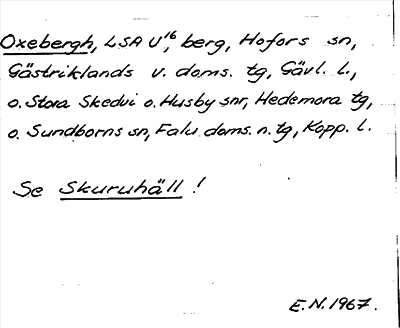 Oxebergh, LSA U¹⁶, berg, Hofors sn,
Gästriklands v. doms. tg, Gävl. l.,
o. Stora Skedvi o. Husby snr, Hedemora tg,
o. Sundborns sn, Falu doms. n. tg, Kopp. l.
Se Skuruhäll!
E.N. 1967.